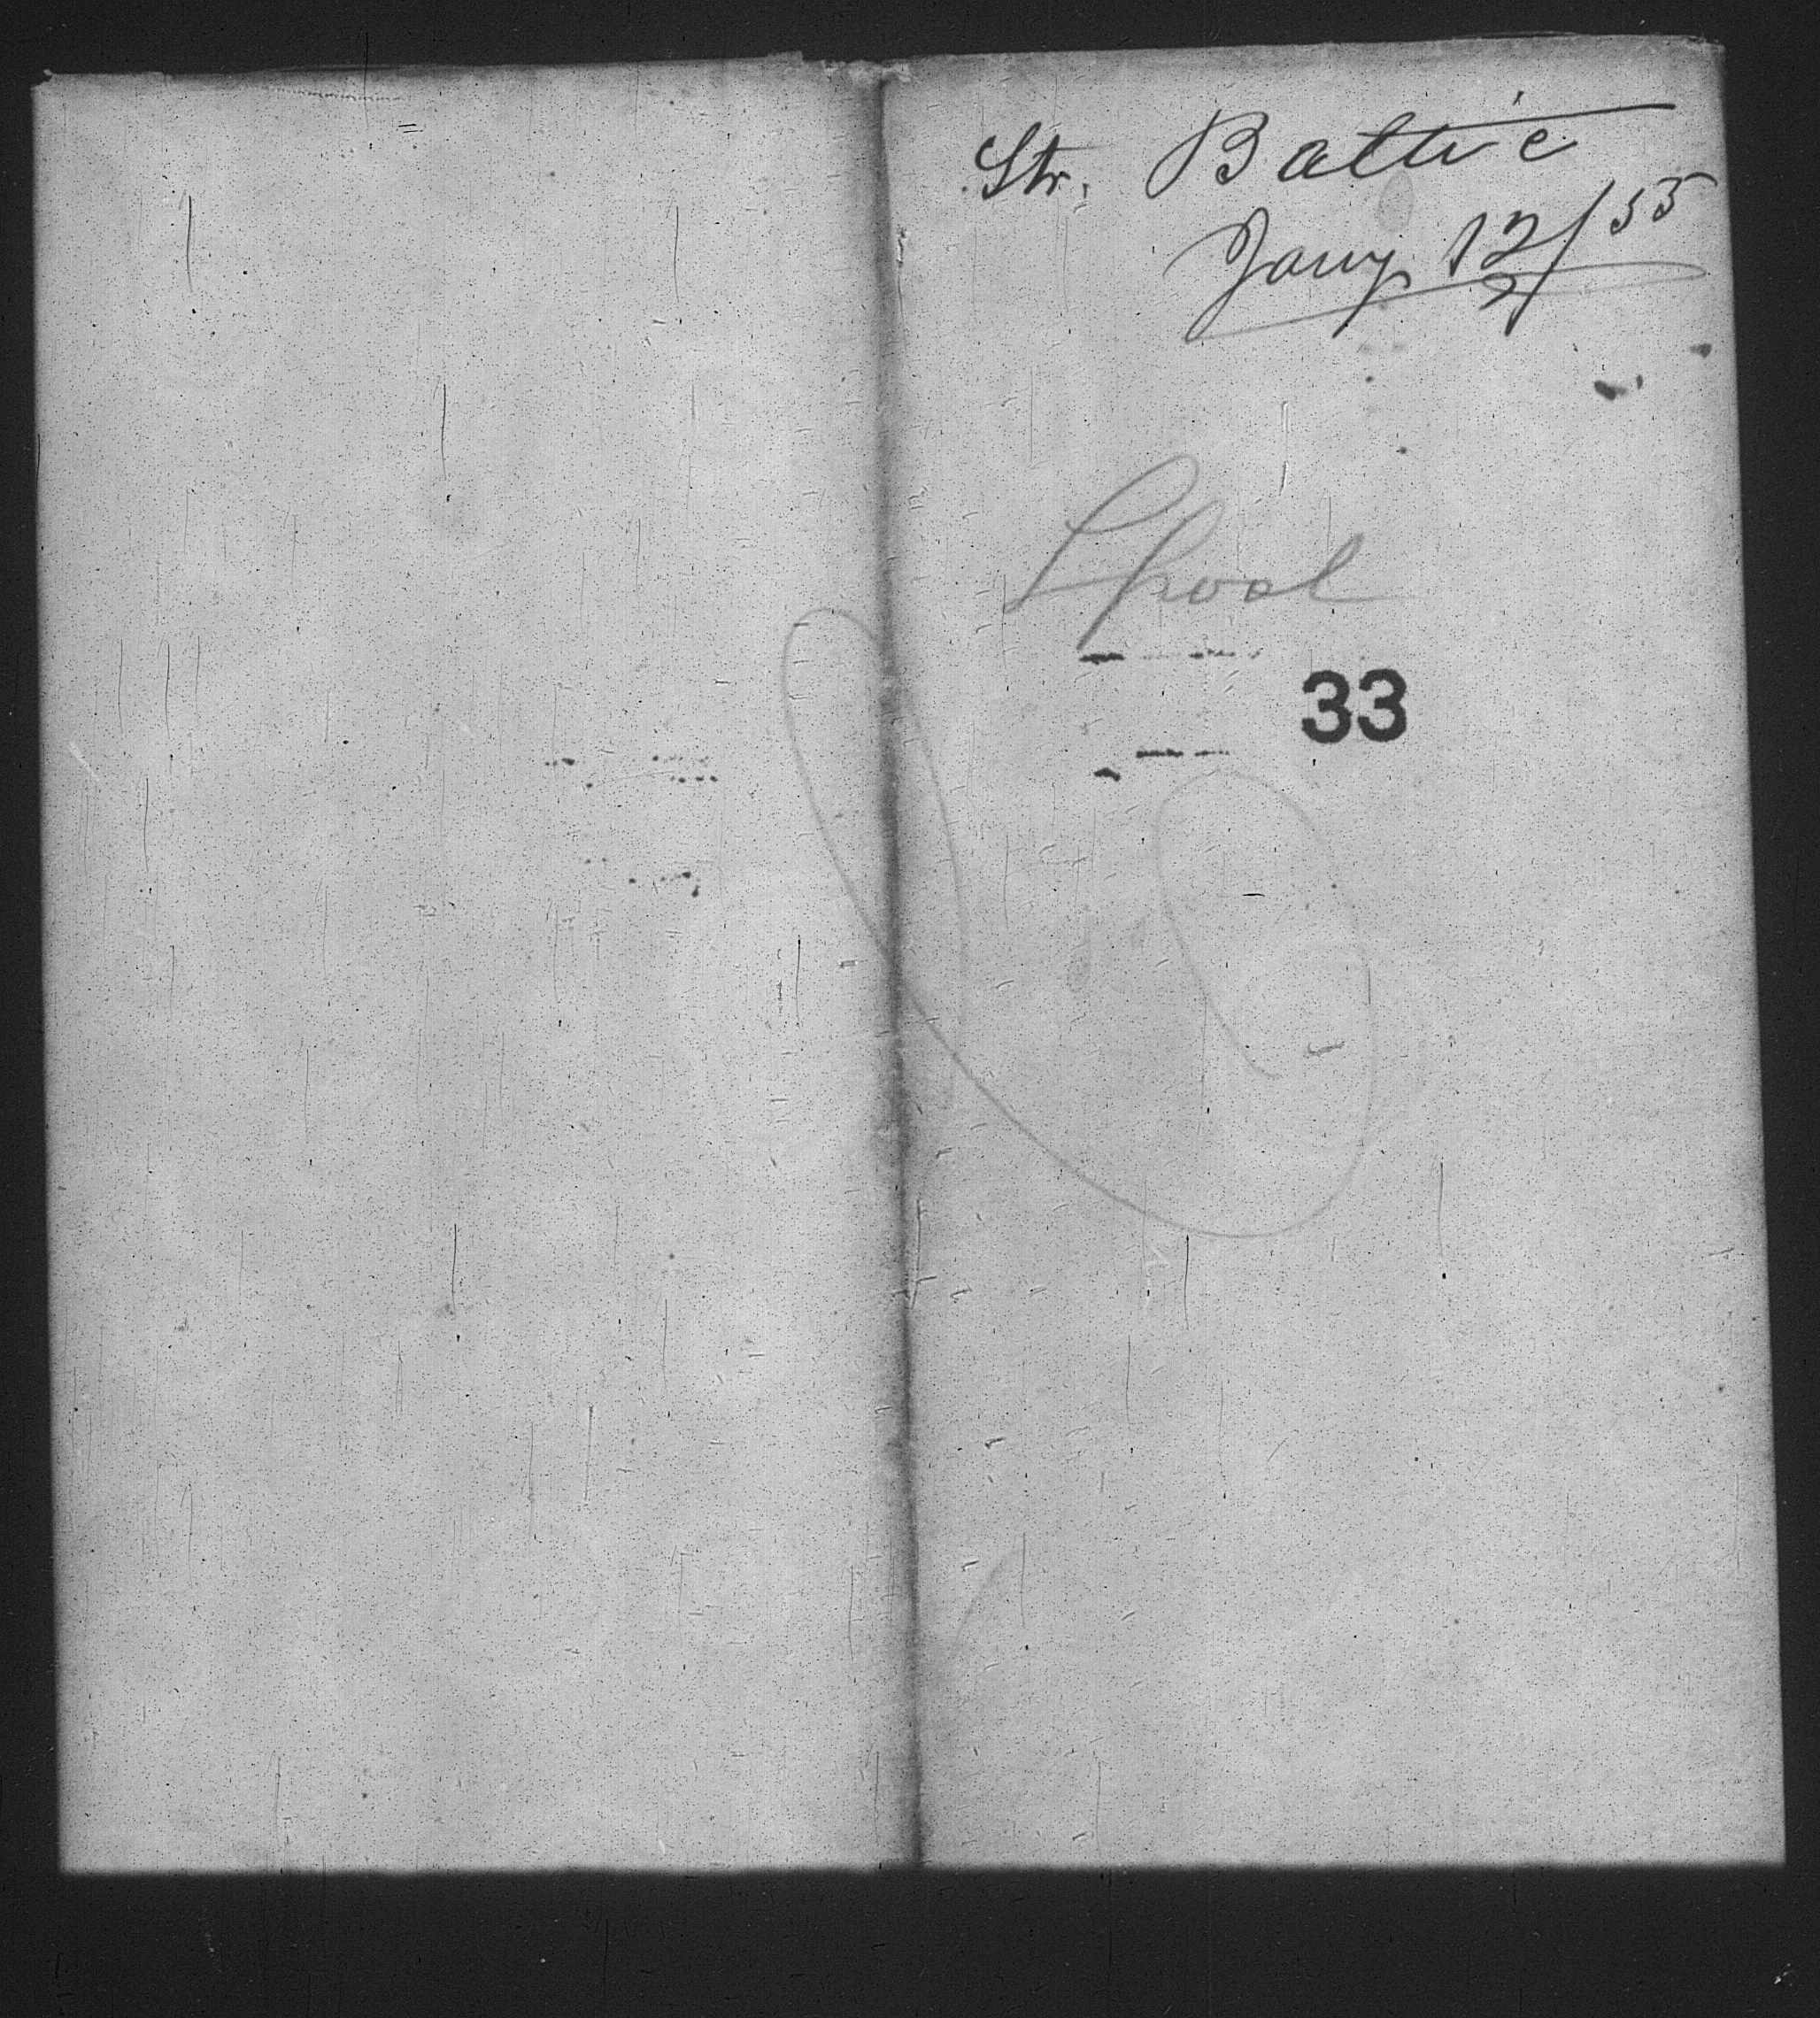 Str. Baltic
Jany 12/55
Lpool
33